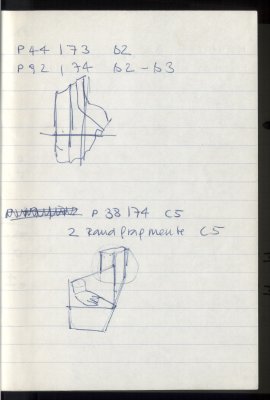 P44 | 73 D2
P92 | 74 D2-D3
P 38 | 74 C5
2 Randfragmente C5